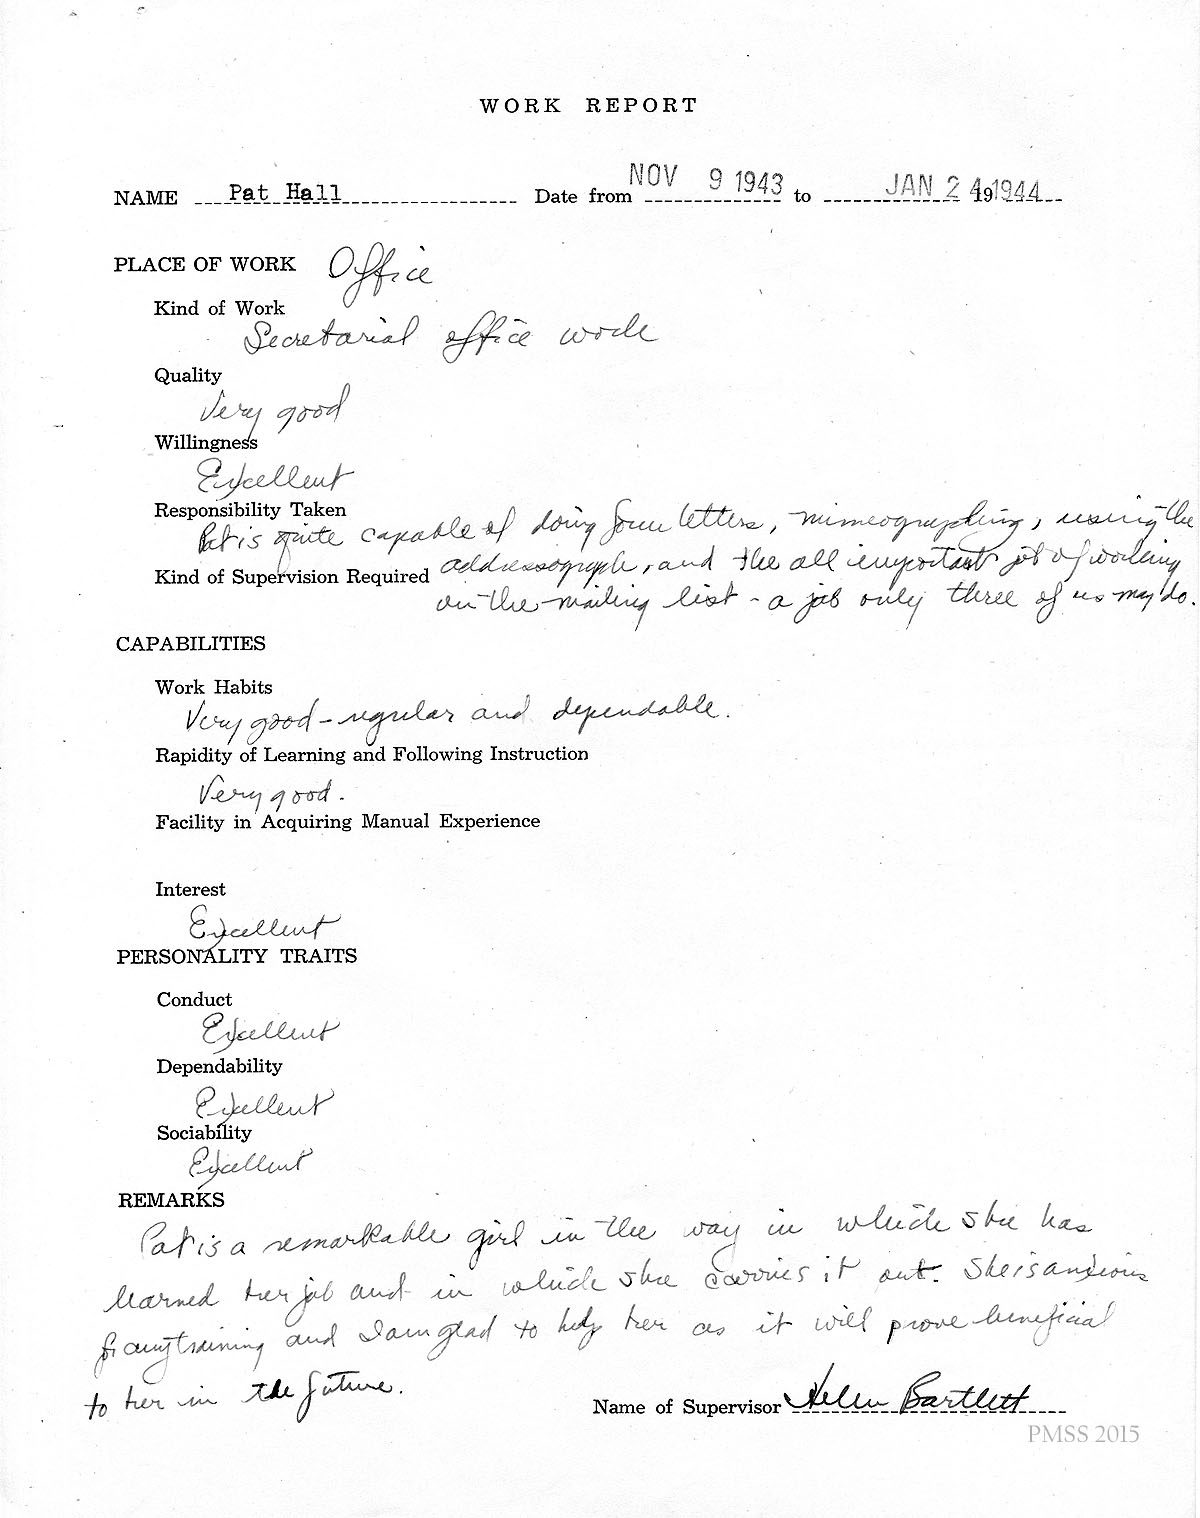 WORK REPORT
NAME Pat Hall Date from NOV 9 1943 to JAN 24 1944
PLACE OF WORK Office
Kind of Work
Secretarial office work
Quality
Very good
Willingness
Excellent
Responsibility Taken
Pat is quite capable of doing form letters, mimeographing, using the
Kind of Supervision Required addressograph, and the all important job of working
on the mailing list - a job only three of us may do.
CAPABILITIES
Work Habits
Very good - regular and dependable.
Rapidity of Learning and Following Instruction
Very good.
Facility in Acquiring Manual Experience
Interest
Excellent
PERSONALITY TRAITS
Conduct
Excellent
Dependability
Excellent
Sociability
Excellent
REMARKS
Pat is a remarkable girl in the way in which she has
learned her job and in which she carries it out. She is anxious
for any training and I am glad to help her as it will prove beneficial
to her in the future.
Name of Supervisor Helen Bartlett
PMSS 2015